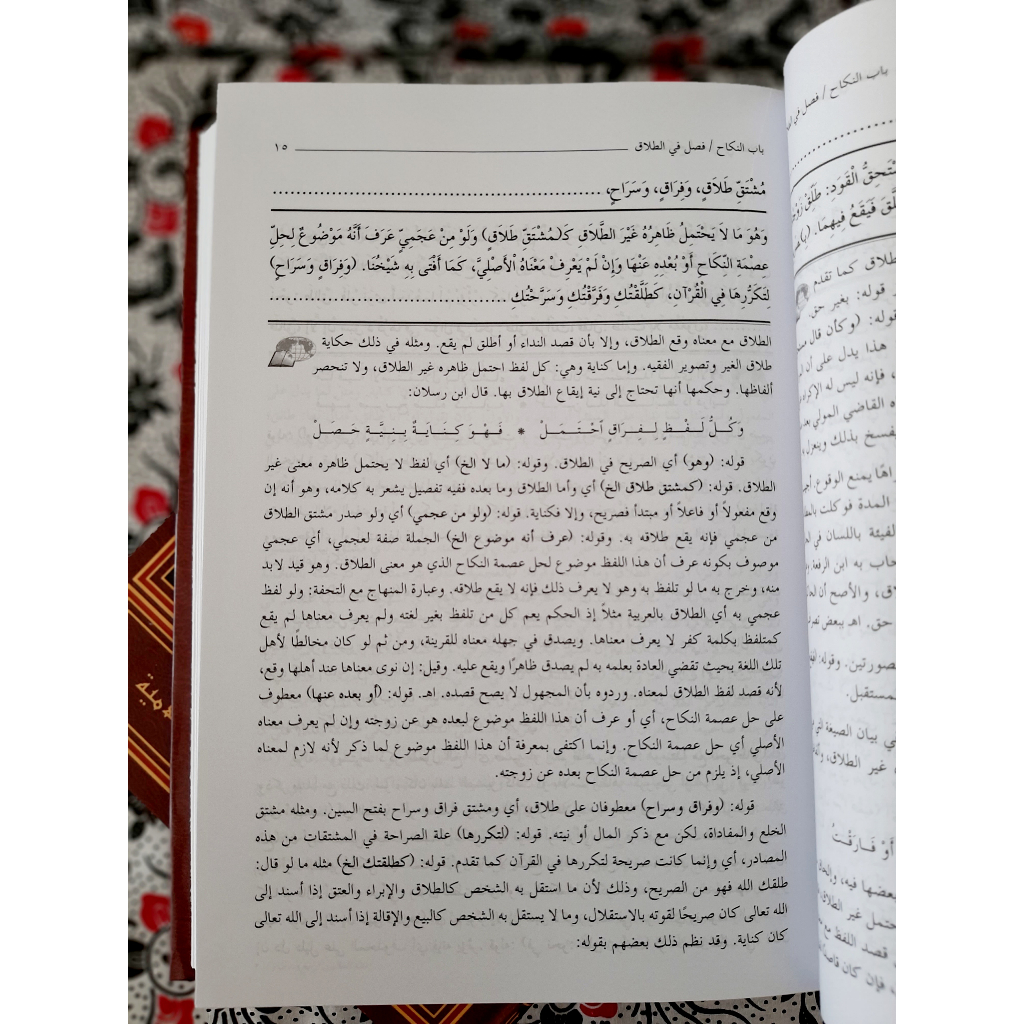 باب النكاح / فصل في الطلاق ١٥
مُشْتَقِّ طَلَاقٍ، وَفِرَاقٍ، وَسَرَاحٍ، ......................................................
وَهُوَ مَا لَا يَحْتَمِلُ ظَاهِرُهُ غَيْرَ الطَّلَاقِ كَـ(مُشْتَقِّ طَلَاقٍ) وَلَوْ مِنْ عَجَمِيٍّ عَرَفَ أَنَّهُ مَوْضُوعٌ لِحلِّ
عِصْمَةِ النِّكَاحِ أَوْ بُعْدِهِ عَنْهَا وَإِنْ لَمْ يَعْرِفْ مَعْنَاهُ الْأَصْلِيَّ، كَمَا أَفْتَى بِهِ شَيْخُنَا. (وَفِرَاقٍ وَسَرَاحٍ)
لِتَكَرُّرِهَا فِي الْقُرْآنِ، كَطَلَّقْتُكِ وَفَرَّقْتُكِ وَسَرَّحْتُكِ.......................................
الطلاق مع معناه وقع الطلاق، وإلا بأن قصد النداء أو أطلق لم يقع. ومثله في ذلك حكاية
طلاق الغير وتصوير الفقيه. وإما كناية وهي: كل لفظ احتمل ظاهره غير الطلاق، ولا تنحصر
ألفاظها. وحكمها أنها تحتاج إلى نية إيقاع الطلاق بها. قال ابن رسلان:
وَكُلُّ لَـفْـظٍ لِـفِـرَاقٍ ٱحْتَـمَـلْ * فَـهْـوَ كِـنَـايَـةٌ بِـنِـيَّـةٍ حَـصَـلْ
قوله: (وهو) أي الصريح في الطلاق. وقوله: (ما لا الخ) أي لفظ لا يحتمل ظاهره معنى غير
الطلاق. قوله: (كمشتق طلاق الخ) أي وأما الطلاق وما بعده ففيه تفصيل يشعر به كلامه، وهو أنه إن
وقع مفعولاً أو فاعلاً أو مبتدأ فصريح، وإلا فكناية. قوله: (ولو من عجمي) أي ولو صدر مشتق الطلاق
من عجمي فإنه يقع طلاقه به. وقوله: (عرف أنه موضوع الخ) الجملة صفة لعجمي، أي عجمي
موصوف بكونه عرف أن هذا اللفظ موضوع لحل عصمة النكاح الذي هو معنى الطلاق. وهو قيد لابد
منه، وخرج به ما لو تلفظ به وهو لا يعرف ذلك فإنه لا يقع طلاقه. وعبارة المنهاج مع التحفة: ولو لفظ
عجمي به أي الطلاق بالعربية مثلاً إذ الحكم يعم كل من تلفظ بغير لغته ولم يعرف معناها لم يقع
كمتلفظ بكلمة كفر لا يعرف معناها. ويصدق في جهله معناه للقرينة، ومن ثم لو كان مخالطًا لأهل
تلك اللغة بحيث تقضي العادة بعلمه به لم يصدق ظاهرًا ويقع عليه. وقيل: إن نوى معناها عند أهلها وقع،
لأنه قصد لفظ الطلاق لمعناه. وردوه بأن المجهول لا يصح قصده. اهـ. قوله: (أو بعده عنها) معطوف
على حل عصمة النكاح، أي أو عرف أن هذا اللفظ موضوع لبعده هو عن زوجته وإن لم يعرف معناه
الأصلي أي حل عصمة النكاح. وإنما اكتفى بمعرفة أن هذا اللفظ موضوع لما ذكر لأنه لازم لمعناه
الأصلي، إذ يلزم من حل عصمة النكاح بعده عن زوجته.
قوله: (وفراق وسراح) معطوفان على طلاق، أي ومشتق فراق وسراح بفتح السين. ومثله مشتق
الخلع والمفاداة، لكن مع ذكر المال أو نيته. قوله: (لتكررها) علة الصراحة في المشتقات من هذه
المصادر، أي وإنما كانت صريحة لتكررها في القرآن كما تقدم. قوله: (كطلقتك الخ) مثله ما لو قال:
طلقك الله فهو من الصريح، وذلك لأن ما استقل به الشخص كالطلاق والإبراء والعتق إذا أسند إلى
الله تعالى كان صريحًا لقوته بالاستقلال، وما لا يستقل به الشخص كالبيع والإقالة إذا أسند إلى الله تعالى
كان كناية. وقد نظم ذلك بعضهم بقوله:
باب النكاح / فصل في
الْقَوَدِ: طَلِّقْ
فَيَقَعُ فِيهِمَا.
الطلاق كما تقدم
قوله: بغير حق.
قوله: (وكأن قال
هذا يدل على أن
فإنه ليس له الإكراه
القاضي المولي بعد
بذلك وينعزل
يمنع الوقوع.
المدة فوكلت
باللسان في
به ابن الرفعة
والأصح أن
حق. اهـ. ببعض
وقوله:
بيان الصيغة
غير الطلاق،
أَوْ فَارَقْتُ
فيه،
غير
قصد اللفظ مع
فإن كان